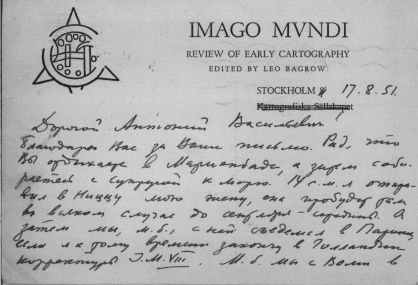 IMAGO MVNDI
REVIEW OF EARLY CARTOGRAPHY
EDITED BY LEO BAGROW
STOCKHOLM 17.8.51.
Kartografiska Sällskapet
Дорогой Антоний Васильевич
благодарю Вас за Ваше письмо. Рад, что
Вы отдыхаете в Мариенбаде, а затем соби-
раетесь с супругой к морю. 14 с.м. я отпра-
вил в Ниццу мою жену, она пробудет там
во всяком случае до сентября - середины. А
затем мы, м.б., с ней съедемся в Париже
если я к тому времени закончу в Голландии
корректуры I.M. VIII. М.б. мы с Вами в